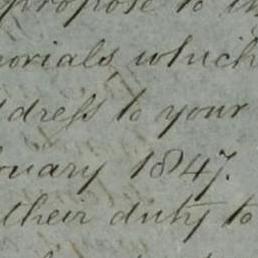 propose to
morials which
ddress to your
ruary 1847.
their duty to